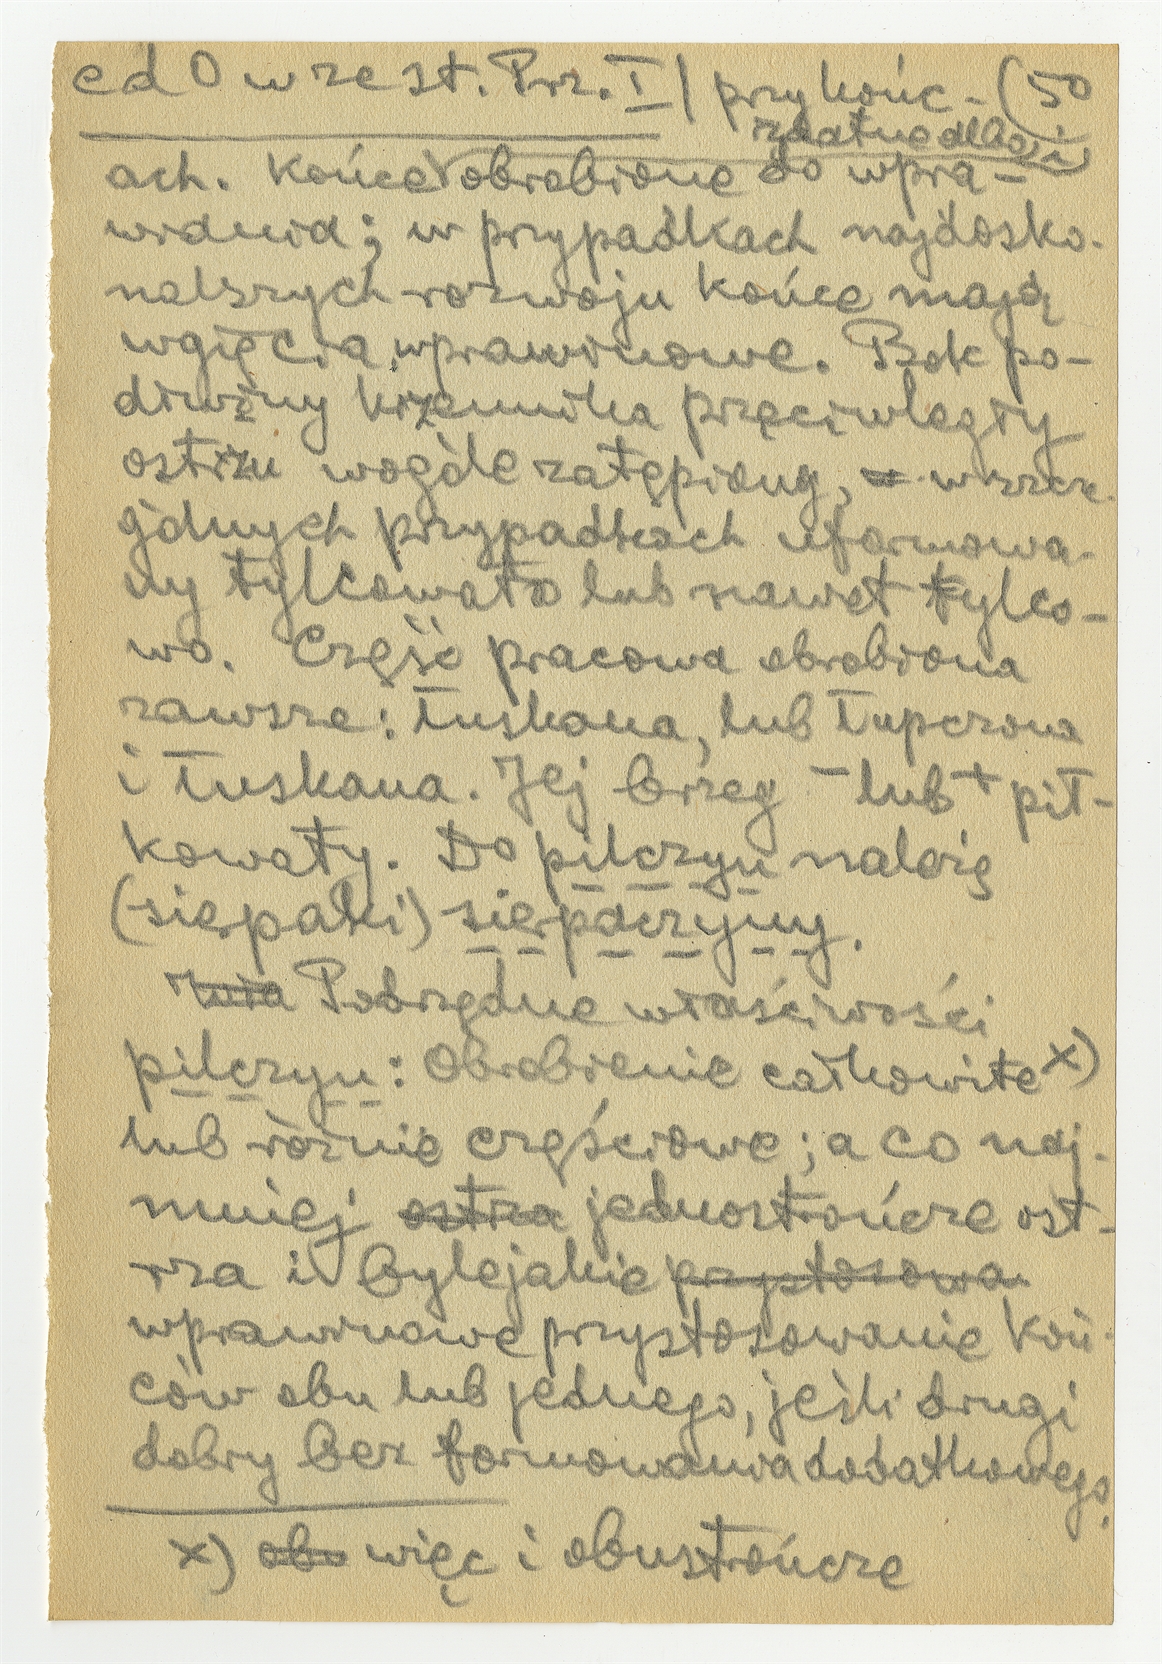 cd O w zest. Prz. I / przy końc- (50
zdatne dla
ach. Końce obrobione do wpra-
widnid; w przypadkach najdosko-
nalszych rozwoju końce mają
wgięcia wprawinowe. Bok po-
dłużny krzemnika przeciwległy
ostrzu wogóle zatępiony, w szcze-
gólnych przypadkach uformowa-
ny tylcowato lub nawet tylco-
wo. Część pracowa obrobiona
zawsze: łuskana, lub łupczona
i łuskana. Jej brzeg - lub + pił-
kowaty. Do pilczyn należą
(siepaki) siepaczyny.
Podrzędne właściwości
pilczyn: Obrobienie całkowite x)
lub różnie częściowe; a co naj-
mniej ostrza jednostrończe ost-
rza i bylejakie przystosowa
wprawinowe przystosowanie koń-
ców obu lub jednego, jeśli drugi
dobry bez formowania dodatkowego.
x) obo więc i obustrończe